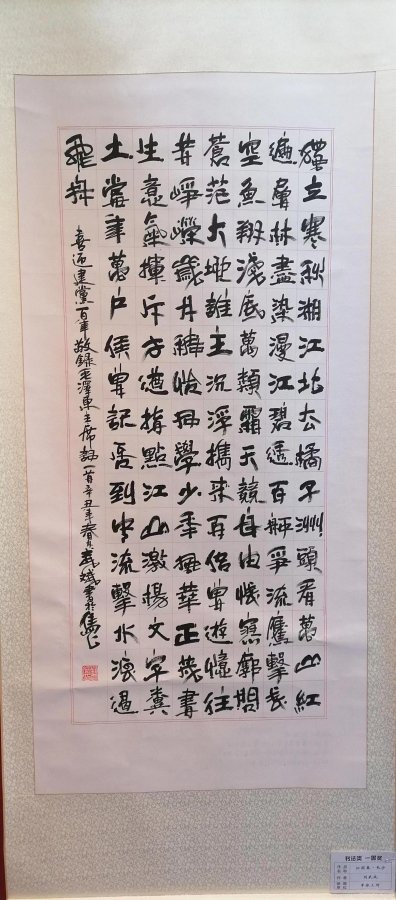 獨立寒秋湘江北去橘子洲頭看萬山紅
遍層林盡染漫江碧透百舸爭流鷹擊長
空魚翔淺底萬類霜天競自由悵寥廓問
蒼茫大地誰主沉浮攜來百侣曾遊憶往
昔崢嶸歲月稠恰同學少年風華正茂書
生意氣揮斥方遒指點江山激揚文字糞
土當年萬户侯曾記否到中流擊水浪遏
飛舟
喜迎建黨一百年敬録毛澤東主席詞一首辛丑年春月武斌書於
书法类 一等奖
沁园春·长沙
作者